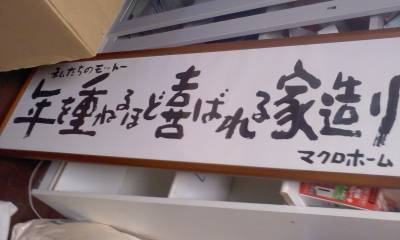 私たちのモットー
年を重ねるほど喜ばれる家造り
マクロホーム